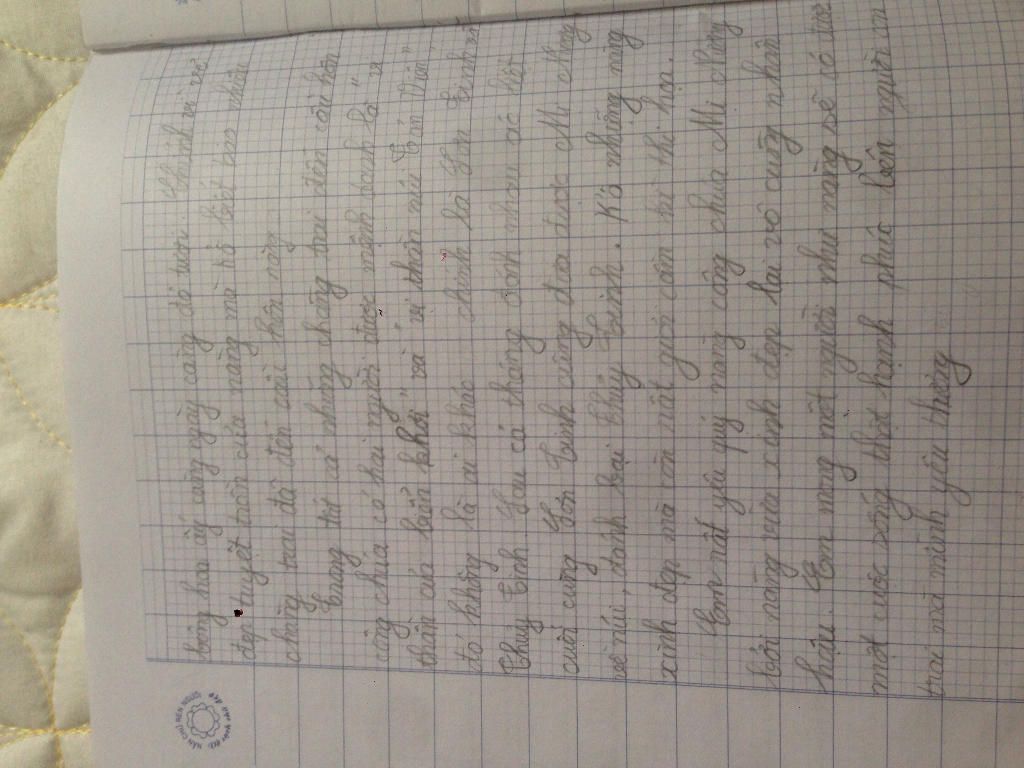 bông hoa ấy càng ngày càng đỏ tươi. Chính vì vẻ
đẹp tuyệt trần của nàng mà từ biết bao nhiêu
chàng trai đã đến cầu hôn nàng.
Trong tất cả những chàng trai đến cầu hôn
công chúa có hai người được mệnh danh là "vị
thần của biển khơi" và "vị thần núi Tản Viên"
đó không là ai khác chính là Sơn Tinh và
Thuỷ Tinh. Sau cả tháng đánh nhau ác liệt
cuối cùng Sơn Tinh cũng đưa được Mị Nương
về núi, đánh bại Thủy Tinh. Kà những nàng
xinh đẹp mà còn rất giỏi cầm kì thi họa.
Em rất yêu quý nàng công chúa Mị Nương
bởi nàng vừa xinh đẹp lại vô cùng nhân
hậu. Em mong một người như nàng sẽ có được
một cuộc sống thật hạnh phúc bên người con
trai mà mình yêu thương